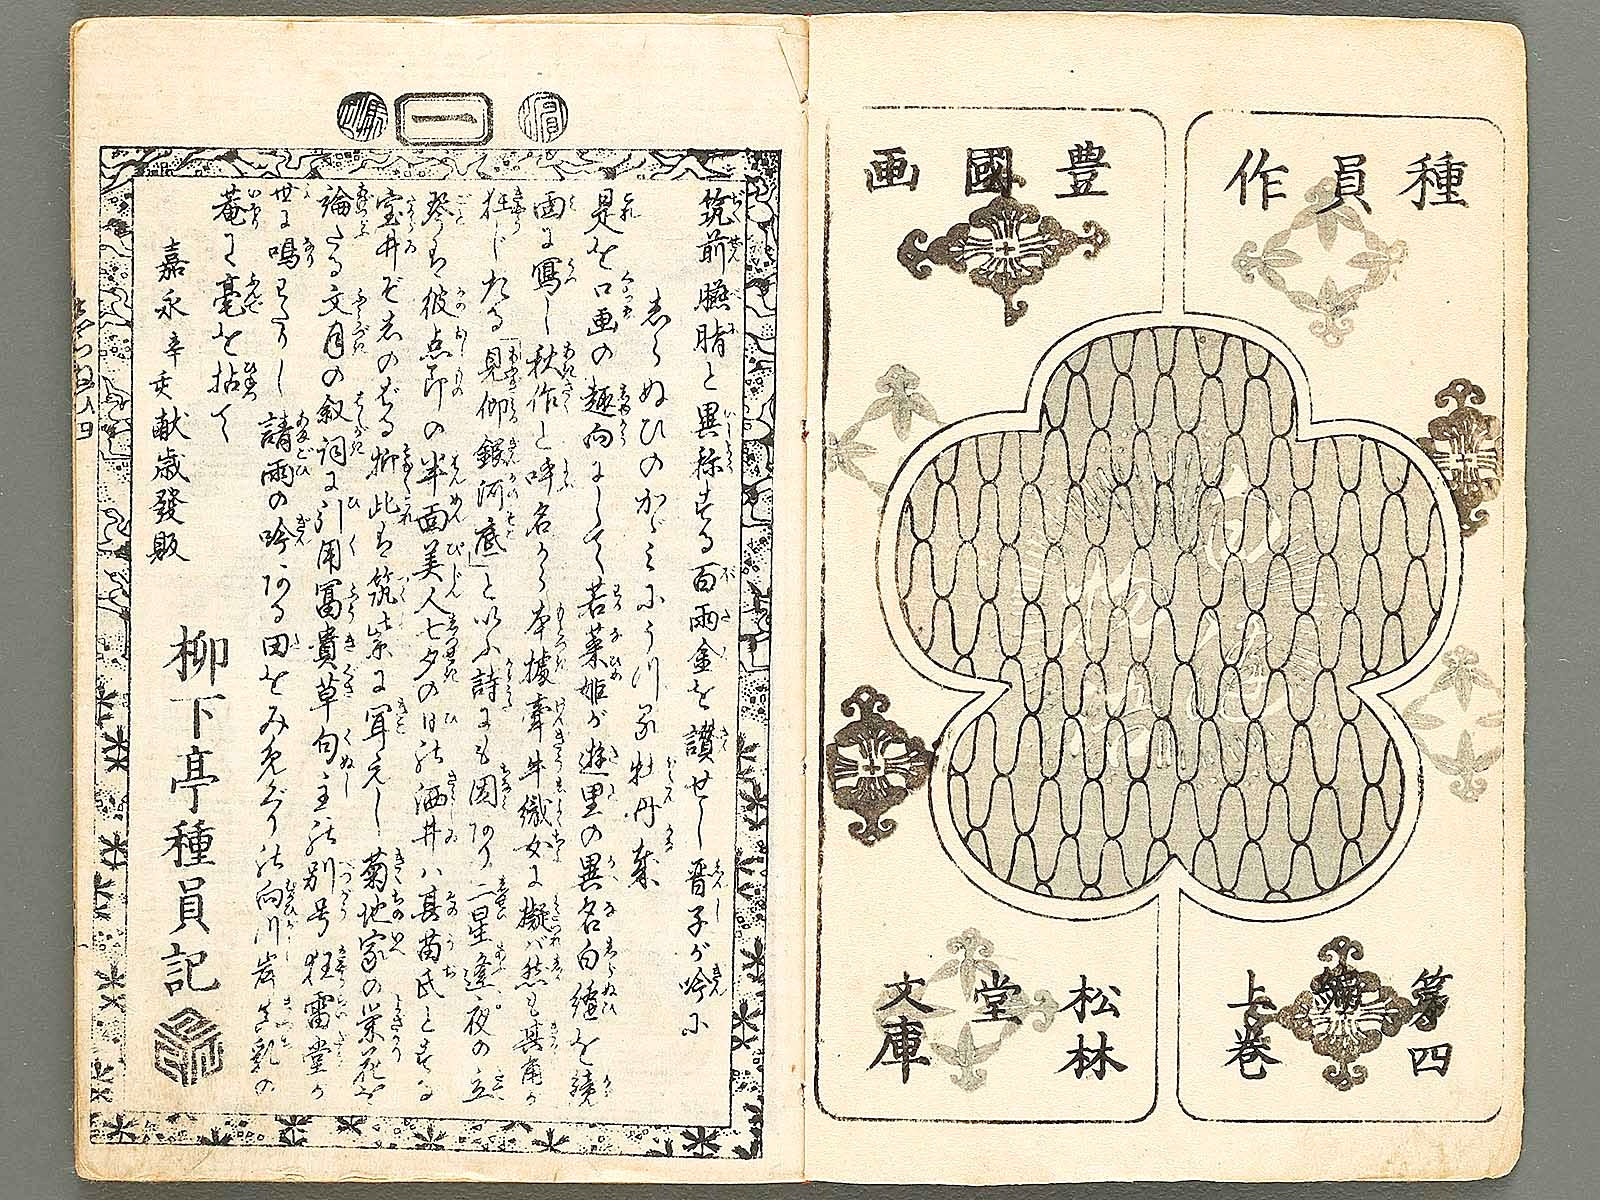 種員作
豊國画
第四編
上巻
松林堂
文庫
一
筑前臙脂と異称する百両金を讃せし晋子が吟に
しらぬひのかゞみにうつる牡丹哉
是を口画の趣向にして若菜姫が遊里の異名白縫を
画に写し秋作と呼名から本據牽牛織女に擬バ然も其角が
狂じたる「見仰銀河底」と以ふ詩にも因あり二星逢夜の
彼点印の半面美人七夕の日の洒井ハ其苗氏とする
此は筑紫に聞えし菊地家の栄花を
論たる文月の叙詞に引用富貴草句主の別号狂雷堂が
世に鳴わたりし請雨の吟ある田をみめぐりの向川岸真乳の
菴に毫を拈て
嘉永辛亥献歳發販
柳下亭種員記